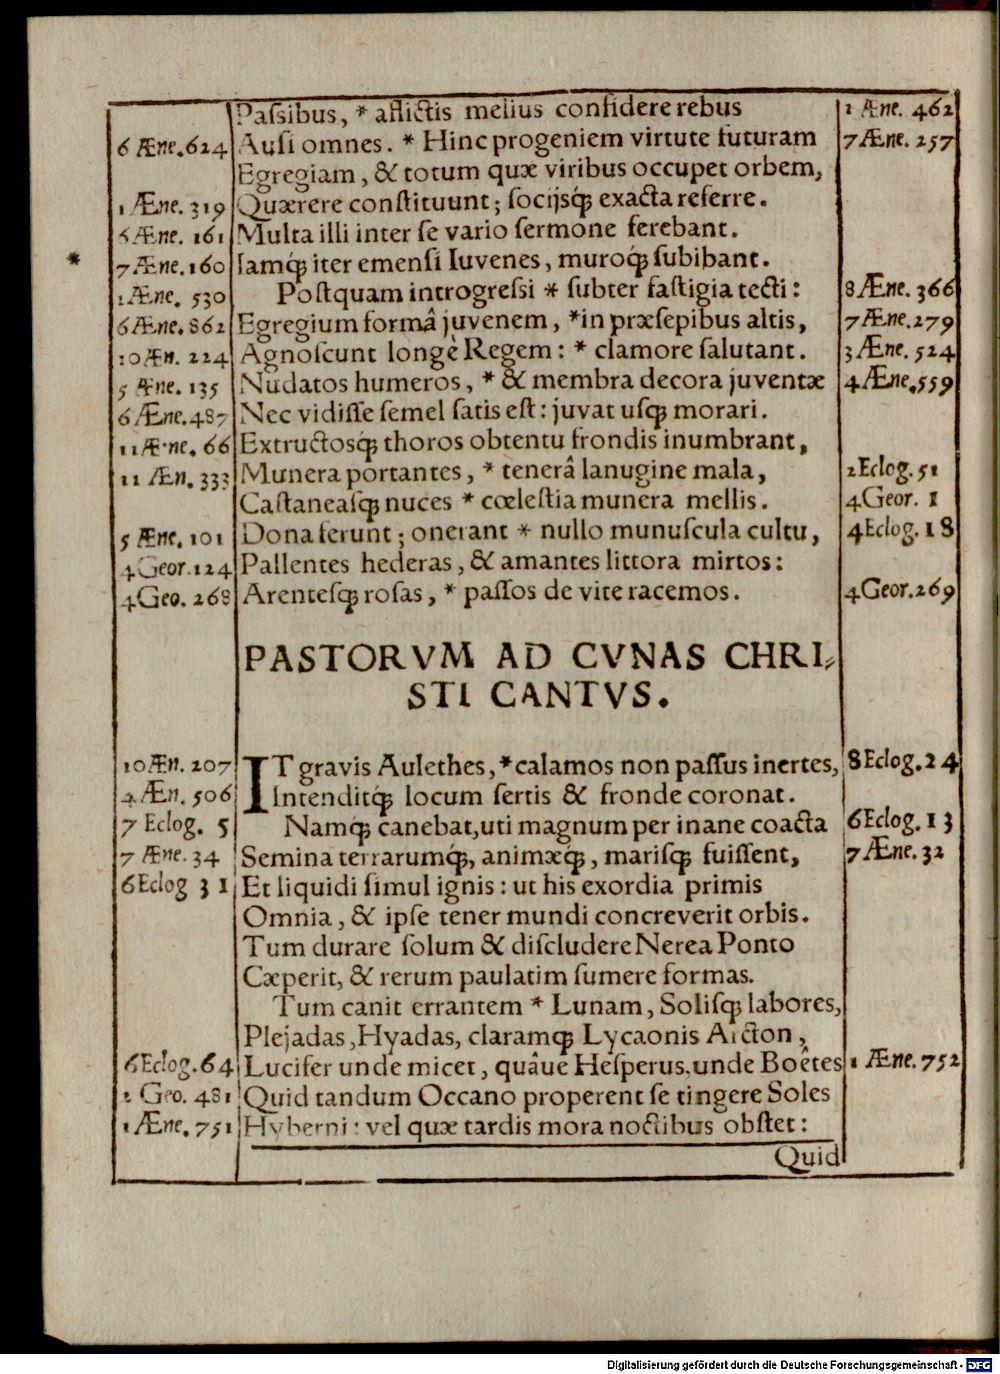 Paſsibus, * aflictis melius confidere rebus 1 Æne. 462
6 Æne. 624 Auſi omnes. * Hinc progeniem virtute futuram 7 Æne. 257
Egregiam, & totum quæ viribus occupet orbem,
1 Æne. 319 Quærere conſtituunt; ſocijsq́; exacta referre.
6 Æne. 161 Multa illi inter ſe vario ſermone ferebant.
* 7 Æne. 160 Iamq́; iter emenſi Iuvenes, muroq́; ſubibant.
1 Æne. 530 Poſtquam introgreſsi * ſubter faſtigia tecti: 8 Æne. 366
6 Æne. 862 Egregium formâ juvenem, * in præſepibus altis, 7 Æne. 279
10 Æn. 224 Agnoſcunt longè Regem: * clamore ſalutant. 3 Æne. 524
5 Æne. 135 Nudatos humeros, * & membra decora juventæ 4 Æne. 559
6 Æne. 487 Nec vidiſſe ſemel ſatis eſt: juvat uſq; morari.
11 Æ·ne. 66 Extructosq́; thoros obtentu frondis inumbrant,
11 Æn. 333 Munera portantes, * tenerâ lanugine mala, 2 Eclog. 51
Caſtaneaſq; nuces * cœleſtia munera mellis. 4 Geor. 1
5 Æne. 101 Dona ferunt; onerant * nullo munuſcula cultu, 4 Eclog. 18
4 Geor. 124 Pallentes hederas, & amantes littora mirtos:
4 Geo. 268 Arenteſq; roſas, * paſſos de vite racemos. 4 Geor. 269
PASTORVM AD CVNAS CHRI-
STI CANTVS.
10 Æn. 207 IT gravis Aulethes, * calamos non paſſus inertes, 8 Eclog. 24
4 Æn. 506 Intenditq́; locum ſertis & fronde coronat.
7 Eclog. 5 Namq́; canebat, uti magnum per inane coacta 6 Eclog. 13
7 Æne. 34 Semina terrarumq́;, animæq́;, mariſq; fuiſſent, 7 Æne. 32
6 Eclog 31 Et liquidi ſimul ignis: ut his exordia primis
Omnia, & ipſe tener mundi concreverit orbis.
Tum durare ſolum & diſcludere Nerea Ponto
Cæperit, & rerum paulatim ſumere formas.
Tum canit errantem * Lunam, Soliſq; labores,
Plejadas, Hyadas, claramq; Lycaonis Arcton,
6 Eclog. 64 Lucifer unde micet, quâue Heſperus, unde Boêtes 1 Æne. 752
2 Geo. 481 Quid tandum Occano properent ſe tingere Soles
1 Æne. 751 Hyberni: vel quæ tardis mora noctibus obſtet:
Quid
Digitalisierung gefördert durch die Deutsche Forschungsgemeinschaft - DFG